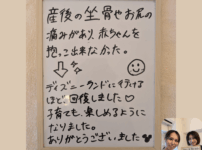 産後の坐骨やお尻の
痛みがあり、赤ちゃんを
抱っこ出来なかった。
ディズニーランドに行ける
ほど、回復しました♡
子育ても、楽しめるように
なりました。
ありがとうございました